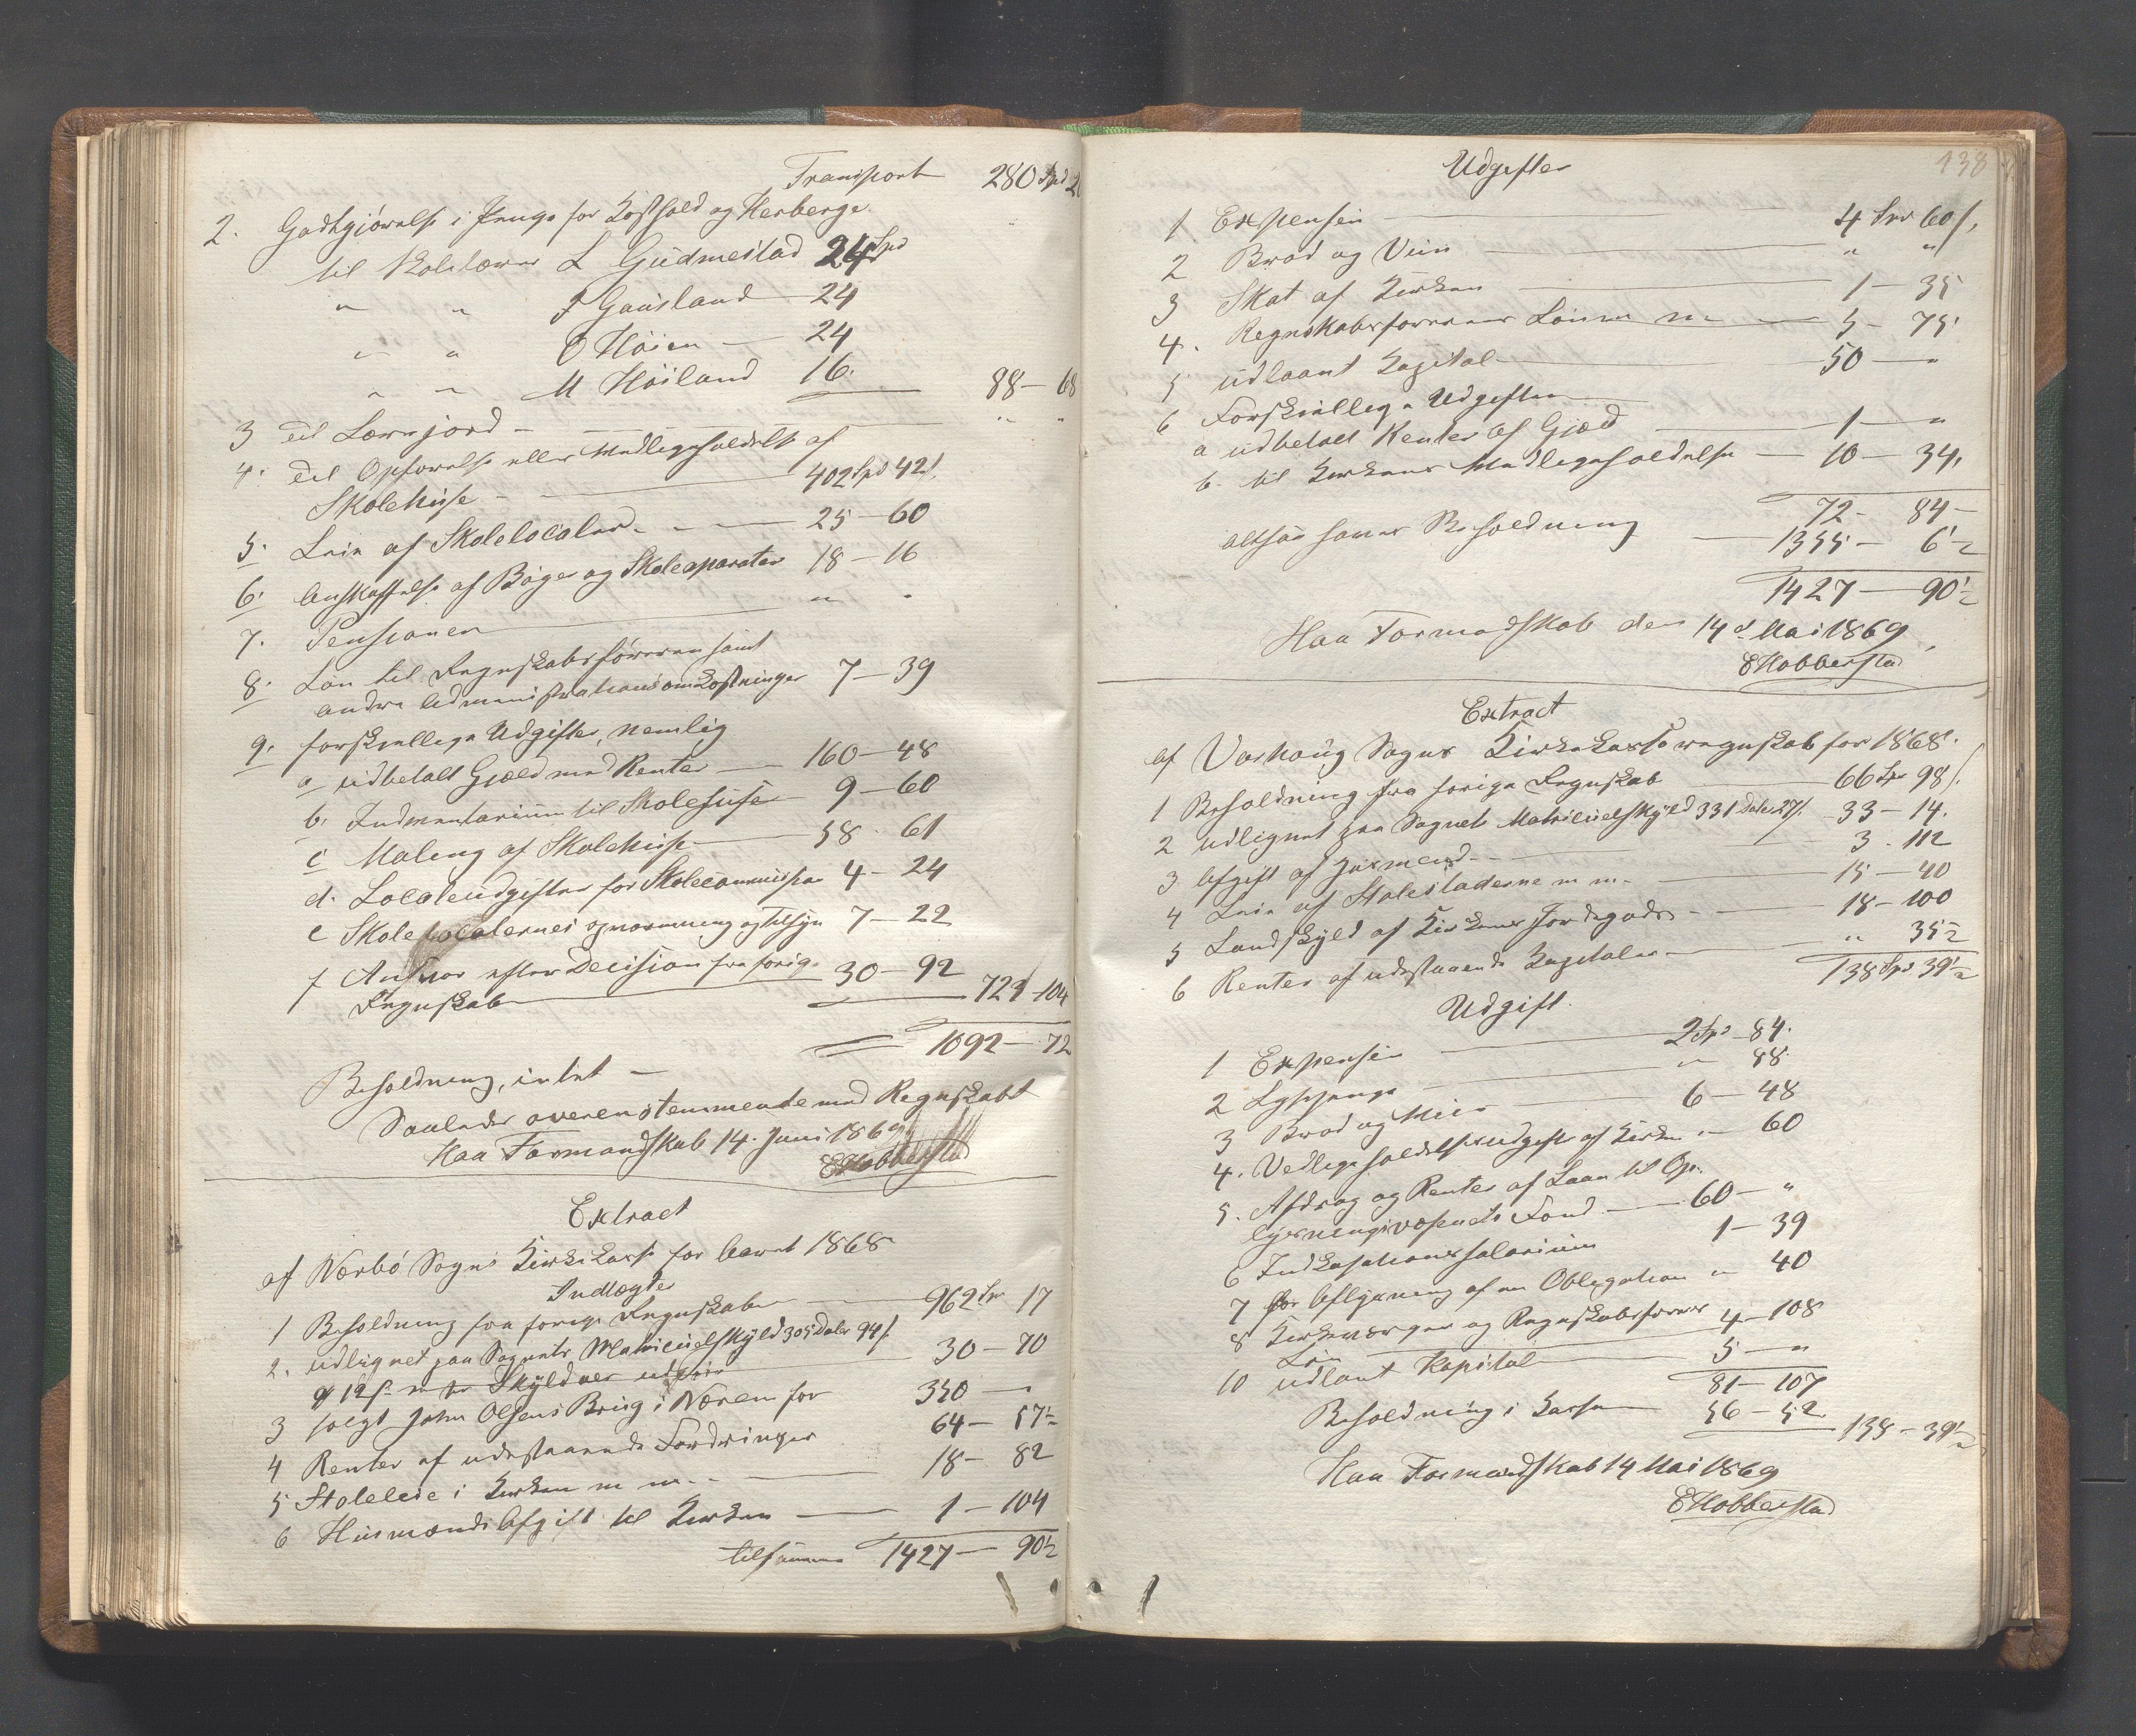 Transport 280 Spd 2
2. Godtgjørelse i Penge for Kosthold og Herberge
til Skolelærer L Gudmestad 24 Spd
" " F Gausland 24
" " O Høien 24
" " M Høiland 16. 88 – 68
3 Til Lærerjord – " "
4. Til Opførelse eller Vedligeholdelse af
Skolehuse – 402 Spd 42 s.
5. Leie af Skolelocaler – 25 – 60
6. Anskaffelse af Bøger og Skoleaparater 18 – 16
7. Pensioner " "
8. Løn til Regnskabsføreren samt
andre Administrationsomkostninger 7 – 39
9. forskjellige Udgifter, nemlig
a udbetalt Gjæld med Renter – 160 – 48
b. Indventarium til Skolehuse 9 – 60
c Maling af Skolehuse – 58 – 61
d. Localeudgifter for Skolecommission 4 – 24
e Skolelocalernes opvarmning og Tilsyn 7 – 22
f Ansvar efter Decision fra forige
Regnskab 30 – 92 723 – 104
1092 – 72
Beholdning, intet –
Saaledes overensstemmende med Regnskabet
Haa Formandskab 14. Juni 1869
E Hobberstad
Extract
af Nærbø Sogns Kirkekasse for Aaret 1868
Indtægter
1 Beholdning fra forige Regnskab – 962 Spd 17
2. udlignet paa Sognets Matriculskyld 305 Daler 94 s.
a 12 s. pr Skylddaler 30 – 70
3 solgt John Olsens Brug i Næren for 350 – "
4 Renter af udestaaende Fordringer 64 – 57½
5 Stoleleie i Kirken m m. – 18 – 82
6 Huusmænds Afgift til Kirken – 1 – 104
tilsammen 1427 – 90½
138
Udgifter
1 Expensen 4 Spd 60 s.
2 Brød og Viin " "
3 Skat af Kirken 1 – 35
4. Regnskabsførerens Løn m m – 5 – 75
5 udlaant Kapital 50 – "
6 Forskjellige Udgifter
a udbetalt Renter af Gjæld 1 – "
b. til Kirkens Vedligeholdelse – 10 – 34,
72 – 84 –
altsaa som Beholdning 1355 – 6½
1427 – 90½
Haa Formandskab den 14d Mai 1869
E Hobberstad
Extract
af Varhaug Sogns Kirkekasseregnskab for 1868.
1 Beholdning fra forige Regnskab 66 Spd 98 s.
2 udlignet paa Sognets Matriculskyld 331 Daler 27 s. 33 – 14.
3 Afgift af Husmænd – 3 – 112
4 Leie af Stolestaderne m m. – 15 – 40
5 Landskyld af Kirkens Jordegods – 18 – 100
6 Renter af udestaaende Kapitaler – " 35½
138 Spd 39½
Udgift.
1 Expensen 2 Spd – 84.
2 " 88.
3 Brød og Viin 6 – 48
4. Vedligeholdelsesudgifter af Kirken " – 60
5. Afdrag og Renter af Laan til Op-
lysningsvæsenets Fond. – 60 – "
6 Indkasationssalarium 1 – 39
7 for Aflysning af en Obligation " 40
8 Kirkeværger og Regnskabsførers
Løn 4 – 108
10 udlaant Kapital 5 – "
81 – 107
Beholdning i Kassen 56 – 52 138 – 39½
Haa Formandskab 14 Mai 1869
E Hobberstad